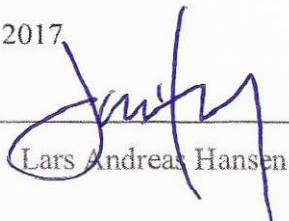 2017
Lars Andreas Hansen